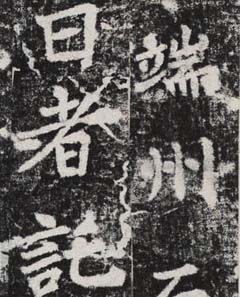 端州石
日者託